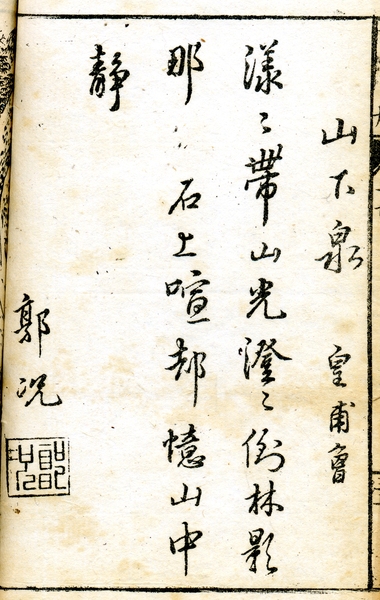 山下泉 皇甫曾
漾〻帶山光澄〻倒林影
那 石上喧却憶山中
静
郭况